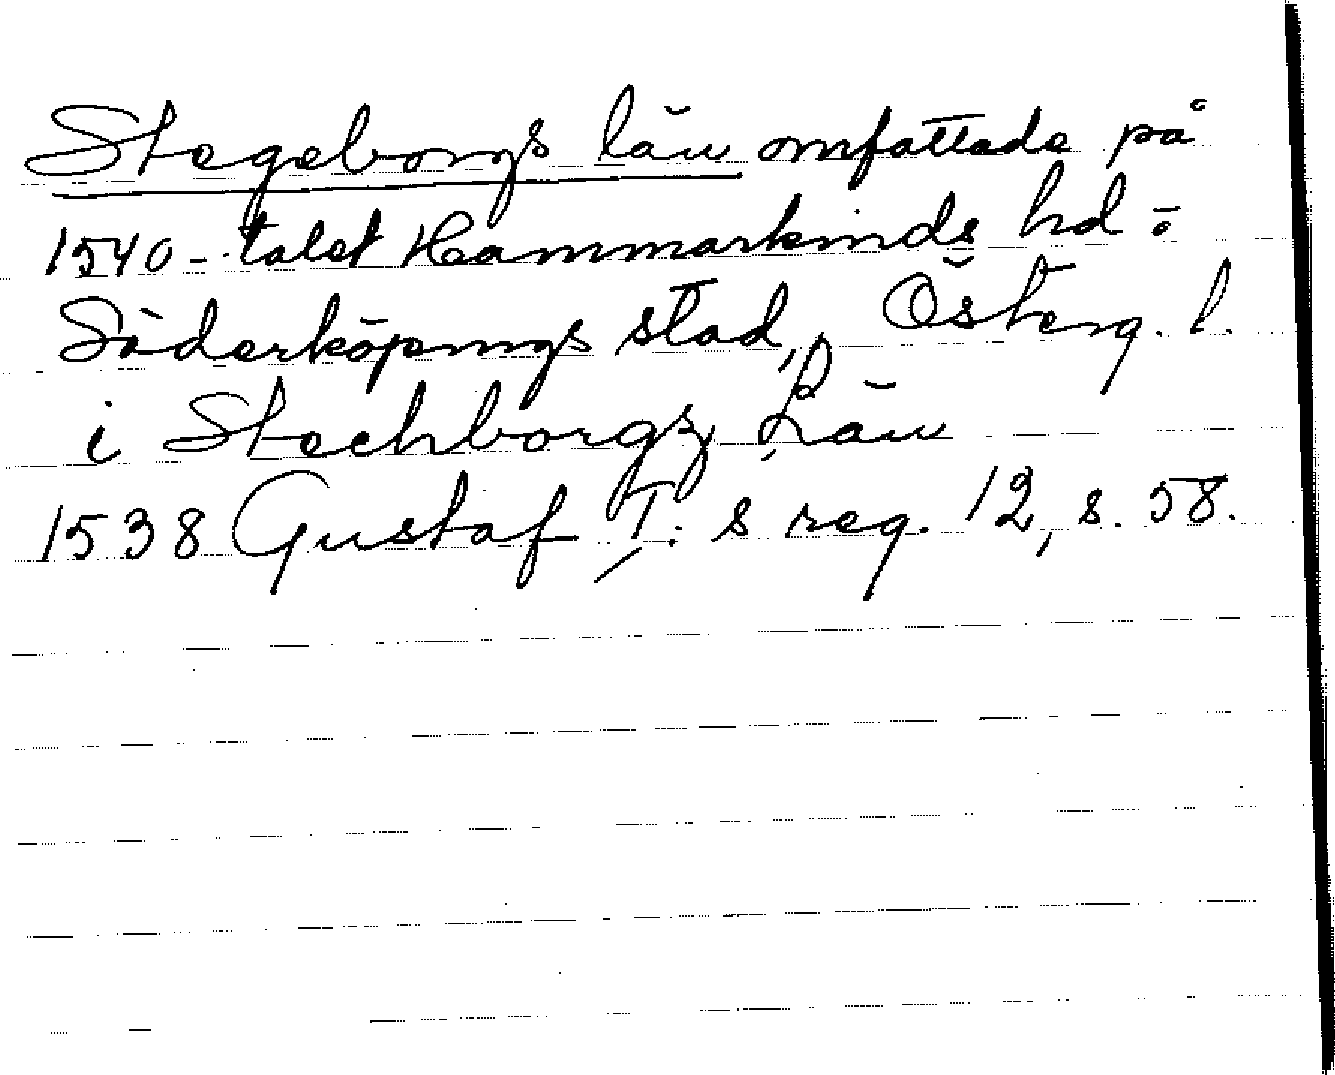 Stegeborgs län omfattade på
1540-talet Hammarkinds hd o
Söderköpings stad, Österg. l.
i Stechborgz Län
1538 Gustaf I: s reg. 12, s. 58.